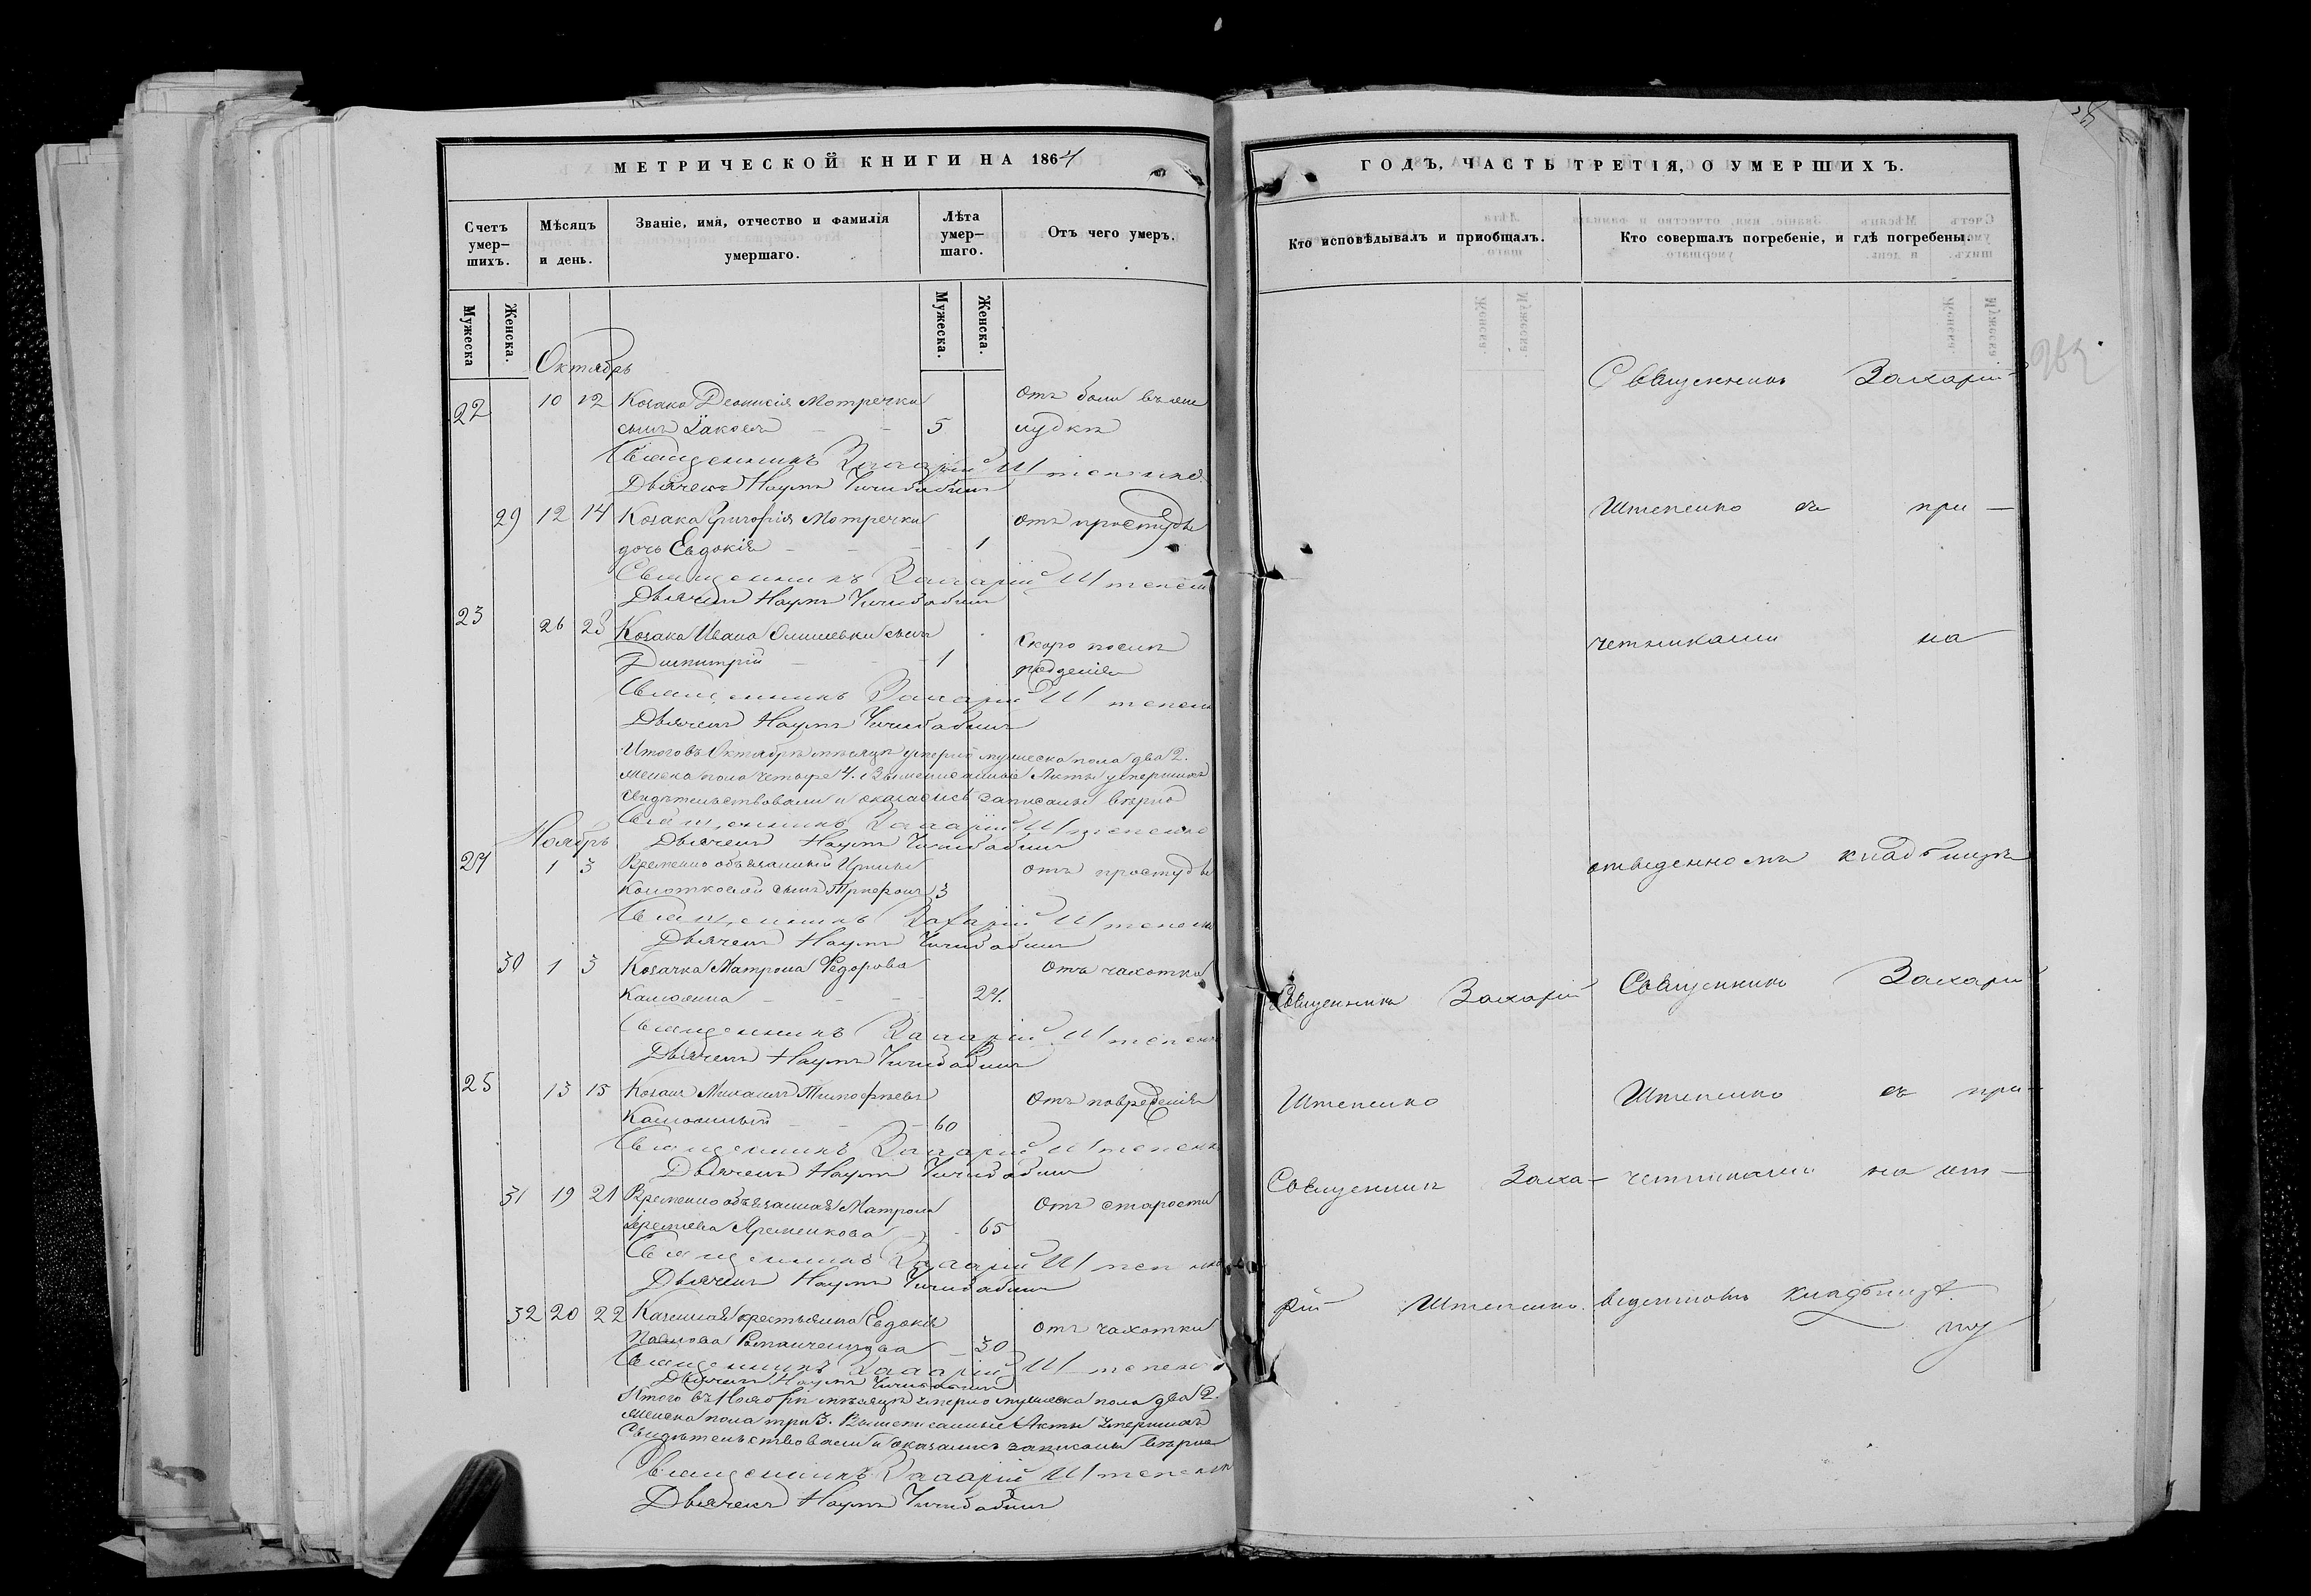 МЕТРИЧЕСКОЙ КНИГИ НА 1864
Счетъ умер-шихъ.
Мѣсяцъ и день.
Званіе, имя, отчество и фамилія умершаго.
Лѣта умер-шаго.
Отъ чего умеръ.
Мужеска
Женска.
Мужеска.
Женска.
Октябрь
22 10 12 Козака Деонисія Мотречки отъ боли въ же
сынъ Іаковъ 5 лудкѣ
Священникъ Захарій Штепенко
Дьячекъ Наумъ Чичибабинъ
29 12 14 Козака Григорія Мотречки отъ простуды
дочь Евдокія 1
Священникъ Захарій Штепен
Дьячекъ Наумъ Чичибабинъ
23 26 28 Козака Ивана сынъ Скоро послѣ
Димитрій 1 рожденія
Священникъ Захарій Штепен
Дьячекъ Наумъ Чичибабинъ
Итого въ Октябрѣ мѣсяцѣ умерло мужеска пола два 2.
женска пола четыре 4. Вышеписанные Акты умершихъ
свидѣтельствовали и оказались записаны вѣрно
Священникъ Захарій Штепенко
Ноябрь Дьячекъ Наумъ Чичибабинъ
24 1 3 Временно обязанной отъ простуды
сынъ Трифонъ 3
Священникъ Захарій Штепенк
Дьячекъ Наумъ Чичибабинъ
30 1 3 Козачка Матрона Федорова отъ чахотки
24.
Священникъ Захарій Штепенк
Дьячекъ Наумъ Чичибабинъ
25 13 15 Козакъ Михаилъ Тимофѣевъ отъ повреденія
60
Священникъ Захарій Штепенк
Дьячекъ Наумъ Чичибабинъ
31 19 21 Временно обязанная Матрона отъ старости
Яременкова 65
Священникъ Захарій Штепенко
Дьячекъ Наумъ Чичибабинъ
32 20 22 Казенная крестьянка Евдокія отъ чахотки
Павлова 30
Священникъ Захарій Штепенк
Дьячекъ Наумъ Чичибабинъ
Итого въ Ноябрѣ мѣсяцѣ умерло мужеска пола два 2.
женска пола три 3. Вышеписанные Акты умершихъ
Свидѣтельствовали и оказались записаны вѣрно
Священникъ Захарій Штепенко
Дьячекъ Наумъ Чичибабинъ
ГОДЪ, ЧАСТЬ ТРЕТІЯ, О УМЕРШИХЪ.
Кто исповѣдывалъ и пріобщалъ.
Кто совершалъ погребеніе, и гдѣ погребены.
Священникъ Захарій
Штепенко съ при-
четниками на
отведенномъ кладбищѣ
Священникъ Захарій Священникъ Захарій
Штепенко Штепенко съ при-
Священникъ Заха- четниками на от-
рій Штепенко. веденномъ кладбищѣ.